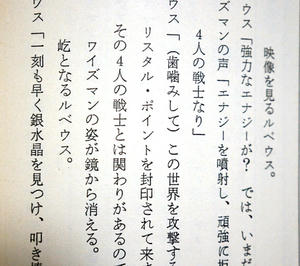 映像を見るルベウス。
ウス「強力なエナジーが？　では、いまだ
ズマンの声「エナジーを噴射し、頑強に拒
4人の戦士なり」
ウス「（歯噛みして）この世界を攻撃する
リスタル・ポイントを封印されて来
その4人の戦士とは関わりがあるので
ワイズマンの姿が鏡から消える。
屹となるルベウス。
ウス「一刻も早く銀水晶を見つけ、叩き